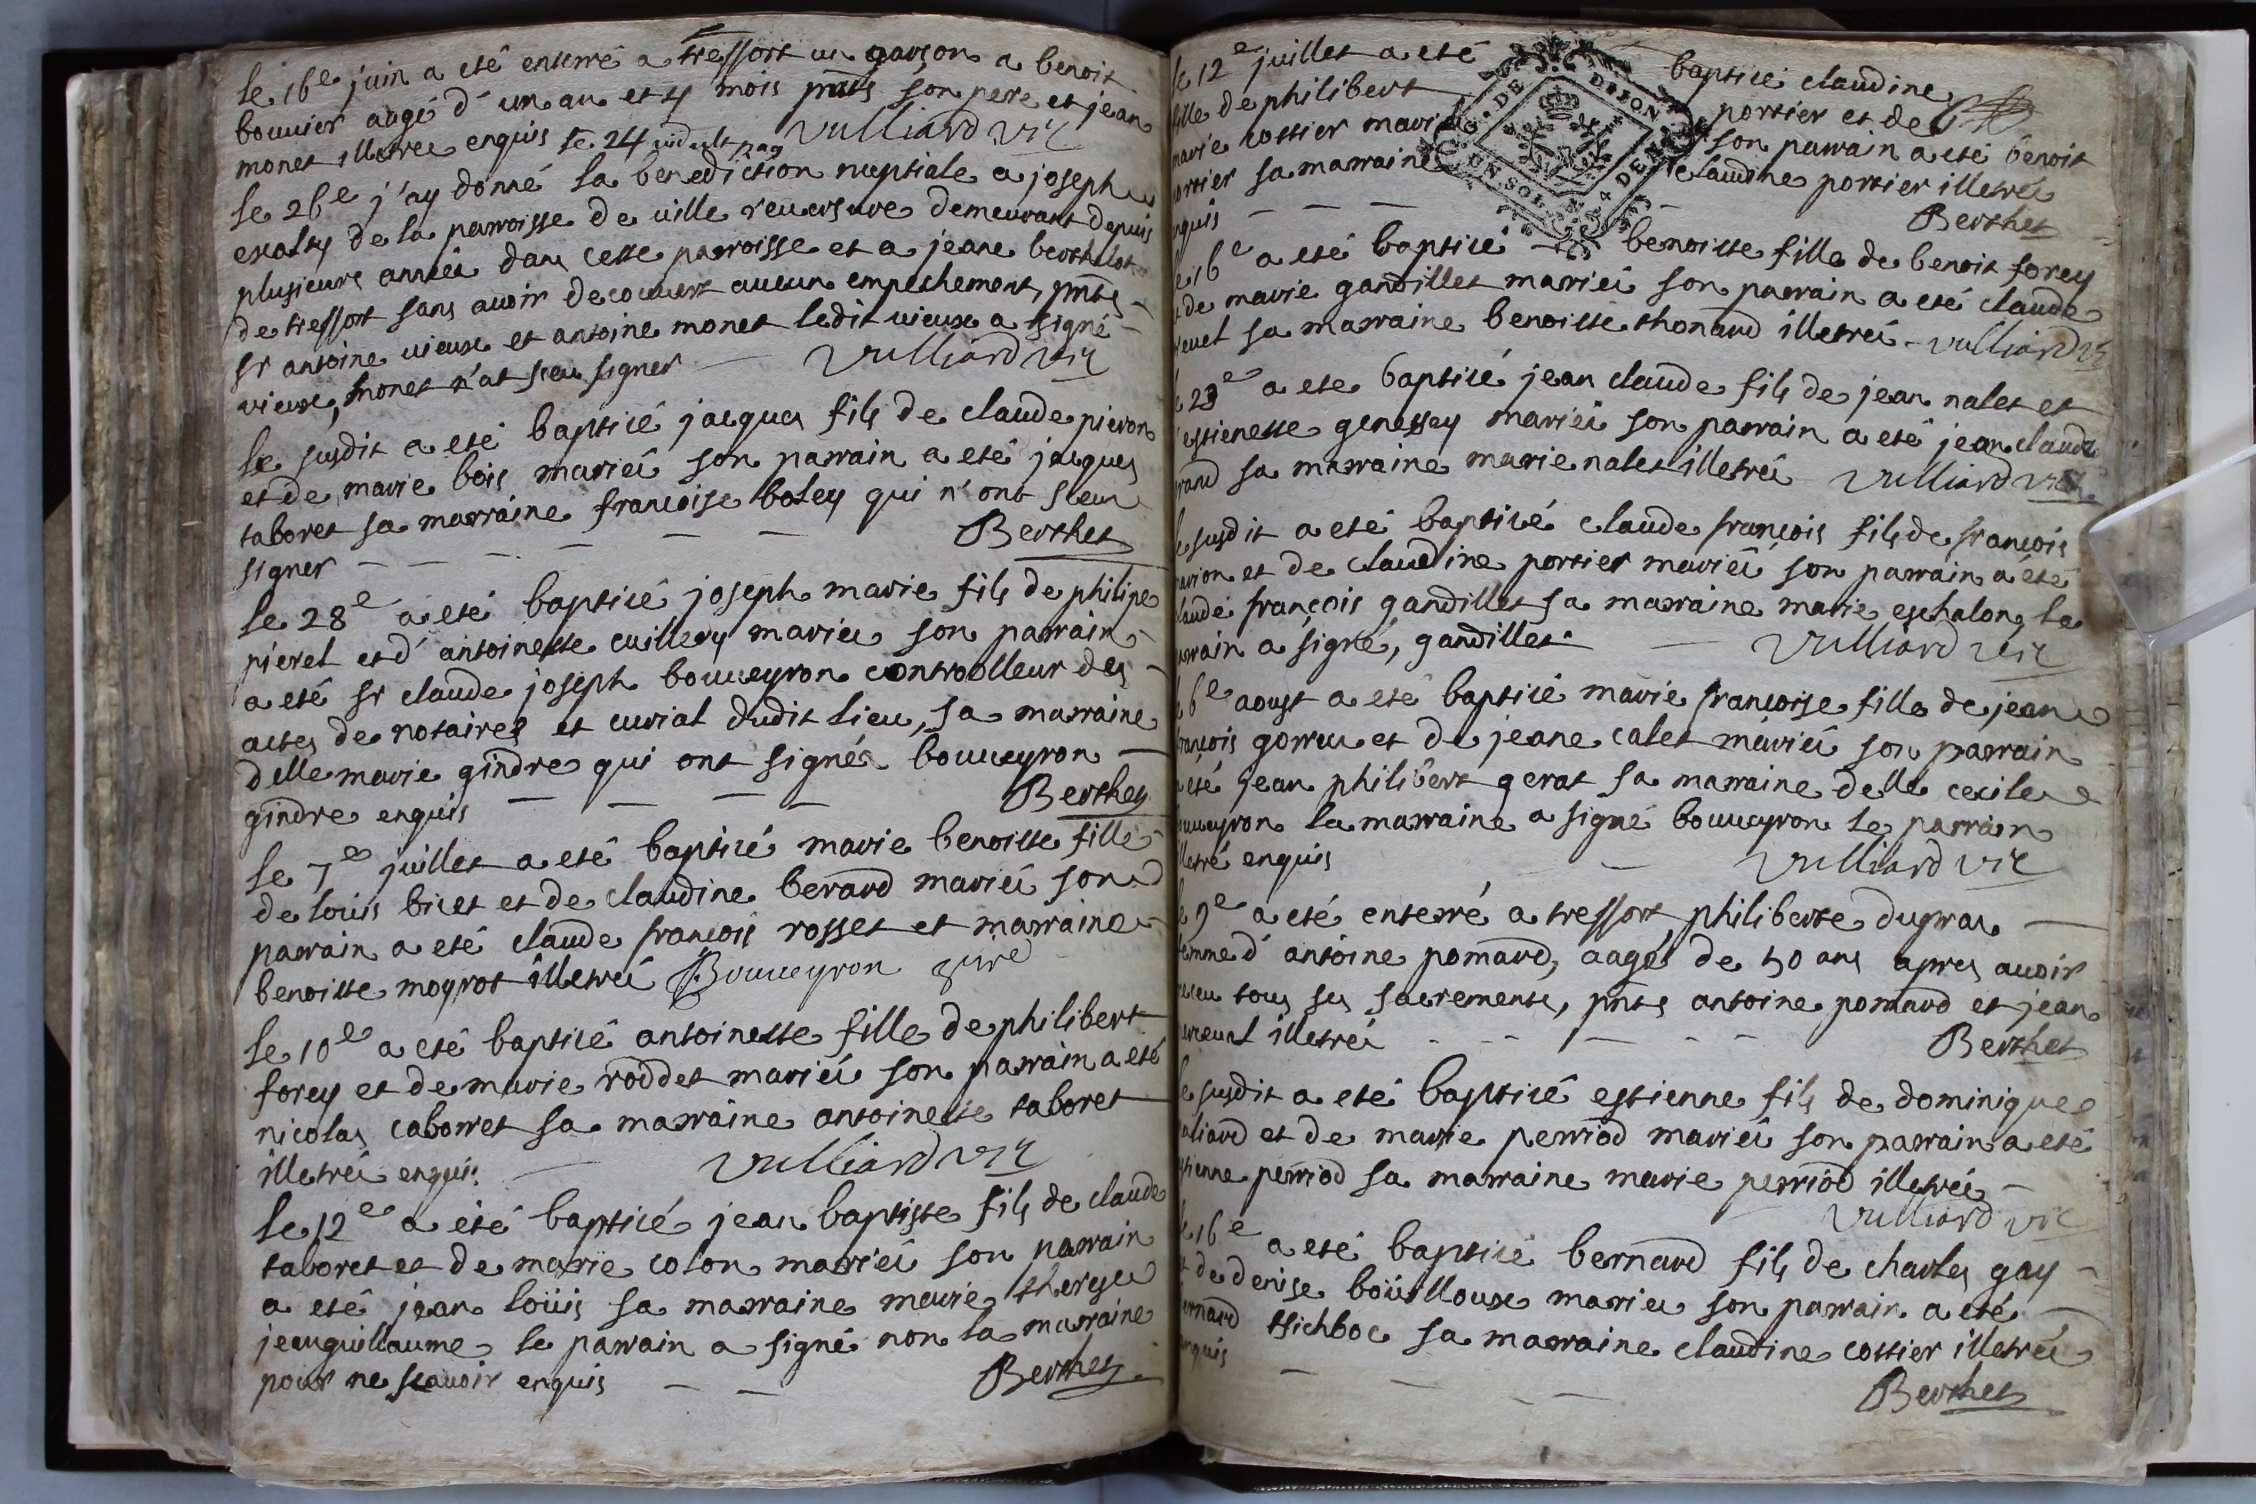 le 16e juin a eté enterré a tressort un garçon a benoit
bouuier aagé d'un an et 4 mois pnts son pere et jean
monet illetrez enquis le 24 Vulliard vic
le 26e j'ay donné la benediction nuptiale a joseph
exalty de la parroisse de ville reuersure demeurant depuis
plusieurs anneés dans cette parroisse et a jeane berthelot
de tressort sans auoir decouuert aucun empechement, pnts
sr antoine uieux et antoine monet ledit uieux a signé
vieux, monet n'at sceu signer Vulliard vic
le susdit a eté baptisé jacques fils de claude pieron
et de marie bois marieî son parrain a eté jacques
taboret sa marraine francoise boley qui n'ont sceu
signer Berthet
le 28e a eté baptisé joseph marie fils de philipe
pierel et d'antoinette cuillery mariez son parrain
a eté sr claude joseph bouueyron controolleur des
actes de notaires et curial dudit lieu, sa marraine
delle marie gindre qui ont signés bouueyron
gindre enquis Berthet
le 7e juillet a eté baptisé marie benoitte fille
de louis bicet et de claudine berard marieî son
parrain a eté claude francois rosset et marraine
benoitte moyrot illetreî Bouueyron curé
le 10e a eté baptisé antoinette fille de philibert
forey et de marie roddet marieî son parrain a eté
nicolas caborret sa marraine antoinette taboret
illetreî enquis Vulliard vic
le 12e a eté baptisé jean baptiste fils de claude
taboret et de marie colon marieî son parrain
a eté jean loüis sa marraine marie therese
jeanguillaume le parrain a signé non la marraine
pour ne scauoir enquis Berthet
le 12e juillet a eté baptisé claudine
fille de philibert portier et de
marie cottier marieî son parrain a eté benoit
portier sa marraine claudine portier illetreî
enquis Berthet
G. DE DIJON
UN SOL 4 DEN
le 16e a eté baptisé benoitte fille de benoit forey
et de marie gandillet marieî son parrain a eté claude
reuel sa marraine benoitte thonard illetreî Vulliard vic
le 23e a ete baptisé jean claude fils de jean nalet et
d'estienette genessey marieî son parrain a eté jean claude
grand sa marraine marie nalet illetreî Vulliard vic
le susdit a eté baptisé claude francois fils de francois
et de claudine portier marieî son parrain a été
claude françois gandillet sa marraine marie eschalon, le
parrain a signé, gandillet Vulliard vic
le 6e aoust a eté baptisé marie francoise fille de jean
françois gorraz et de jeane calet marieî son parrain
a eté jean philibert gerat sa marraine delle cecile
bouueyron la marraine a signé bouueyron le parrain
illetré enquis Vulliard vic
le 9e a eté enterré a tressort philiberte dupras
femme d'antoine pomard, aagée de 50 ans apres auoir
receu tous ses sacrements, pnts antoine pomard et jean
illetreî Berthet
le susdit a eté baptisé estienne fils de dominique
et de marie perriod marieî son parrain a eté
estienne perriod sa marraine marie perriod illetreî
Vulliard vic
le 16e a eté baptisé bernard fils de charles gay
et de denise boüilloux mariez son parrain a eté
bernard tsichboc sa marraine claudine cottier illetreî
enquis
Berthet